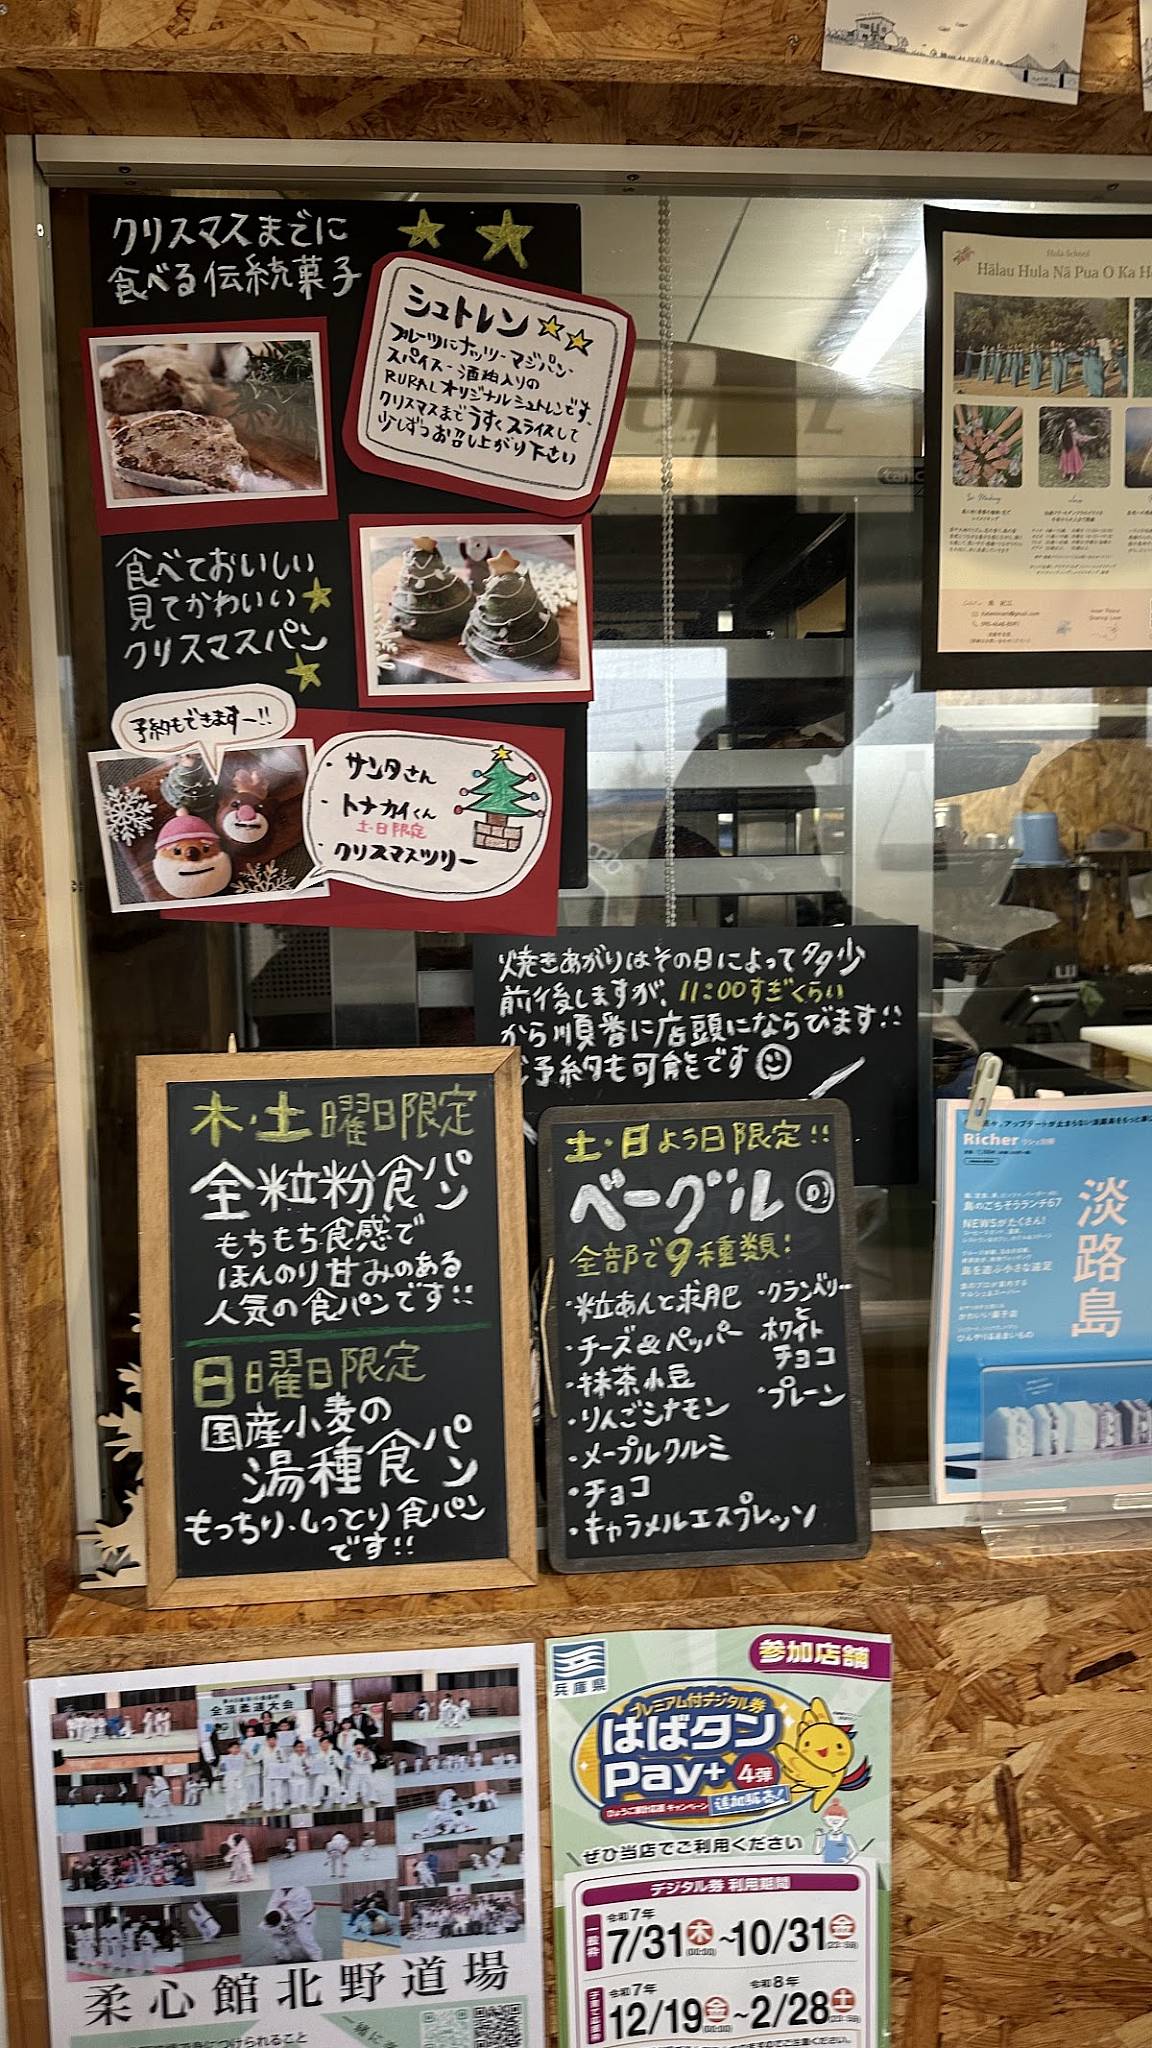 クリスマスまでに
食べる伝統菓子
シュトレン
フルーツにナッツ・マジパン・
スパイス・酒粕入りの
RURALオリジナルシュトレンです。
クリスマスまでうすくスライスして
少しずつお召し上がり下さい
食べておいしい
見てかわいい
クリスマスパン
予約もできますー!!
・サンタさん
・トナカイくん
土・日限定
・クリスマスツリー
焼きあがりはその日によって多少
前後しますが、11:00すぎくらい
から順番に店頭にならびます!!
ご予約も可能です
木・土曜日限定
全粒粉食パン
もちもち食感で
ほんのり甘みのある
人気の食パンです!!
日曜日限定
国産小麦の
湯種食パン
もっちり、しっとり食パン
です!!
土・日よう日限定!!
ベーグル
全部で9種類!
・粒あんと求肥
・チーズ&ペッパー
・抹茶小豆
・りんごシナモン
・メープルクルミ
・チョコ
・キャラメルエスプレッソ
・クランベリー
と
ホワイト
チョコ
・プレーン
Hula School
Hālau Hula Nā Pua O Ka H
Richer
島のごちそうランチ67
NEWSがたくさん!
島を遊ぶ小さな遠足
淡路島
全淡柔道大会
柔心館北野道場
兵庫県
参加店舗
プレミアム付デジタル券
はばタン
Pay+
4弾
ひょうご家計応援キャンペーン
追加販売!
ぜひ当店でご利用ください
デジタル券 利用期間
一般枠
令和7年
7/31木(00:00)~10/31金(23:59)
令和7年 令和8年
12/19金(00:00)~2/28土(23:59)